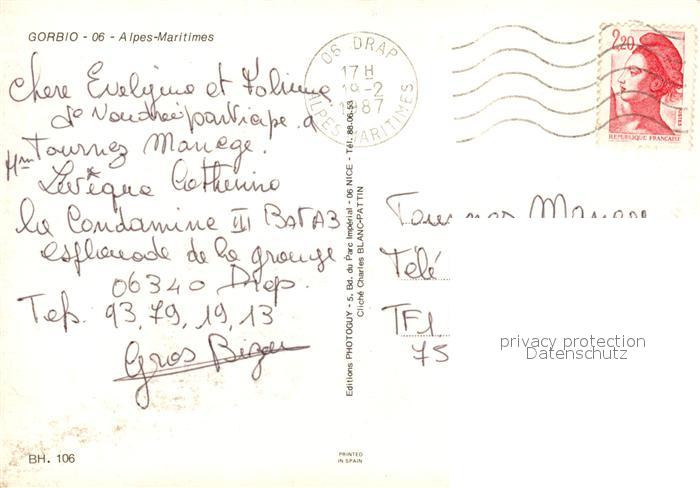 GORBIO - 06 - Alpes-Maritimes
Chere Evelyne et Fabienne
Je Voudrai participe a
Tournez Manège.
Mme Lévêque Catherine
la Condamine III Bat A3
esplanade de la grange
06340 Drap.
Tef. 93.79.19.13
Gros Bizou
BH. 106
PRINTED
IN SPAIN
Editions PHOTOGUY - 5, Bd. du Parc Impérial - 06 NICE - Tél. 88-06-53
Cliché Charles BLANC-PATTIN
06 DRAP
17 H
19-2
1987
ALPES MARITIMES
2,20
POSTES
REPUBLIQUE FRANCAISE
Tournez Manege
Télé
TF1
75
privacy protection
Datenschutz